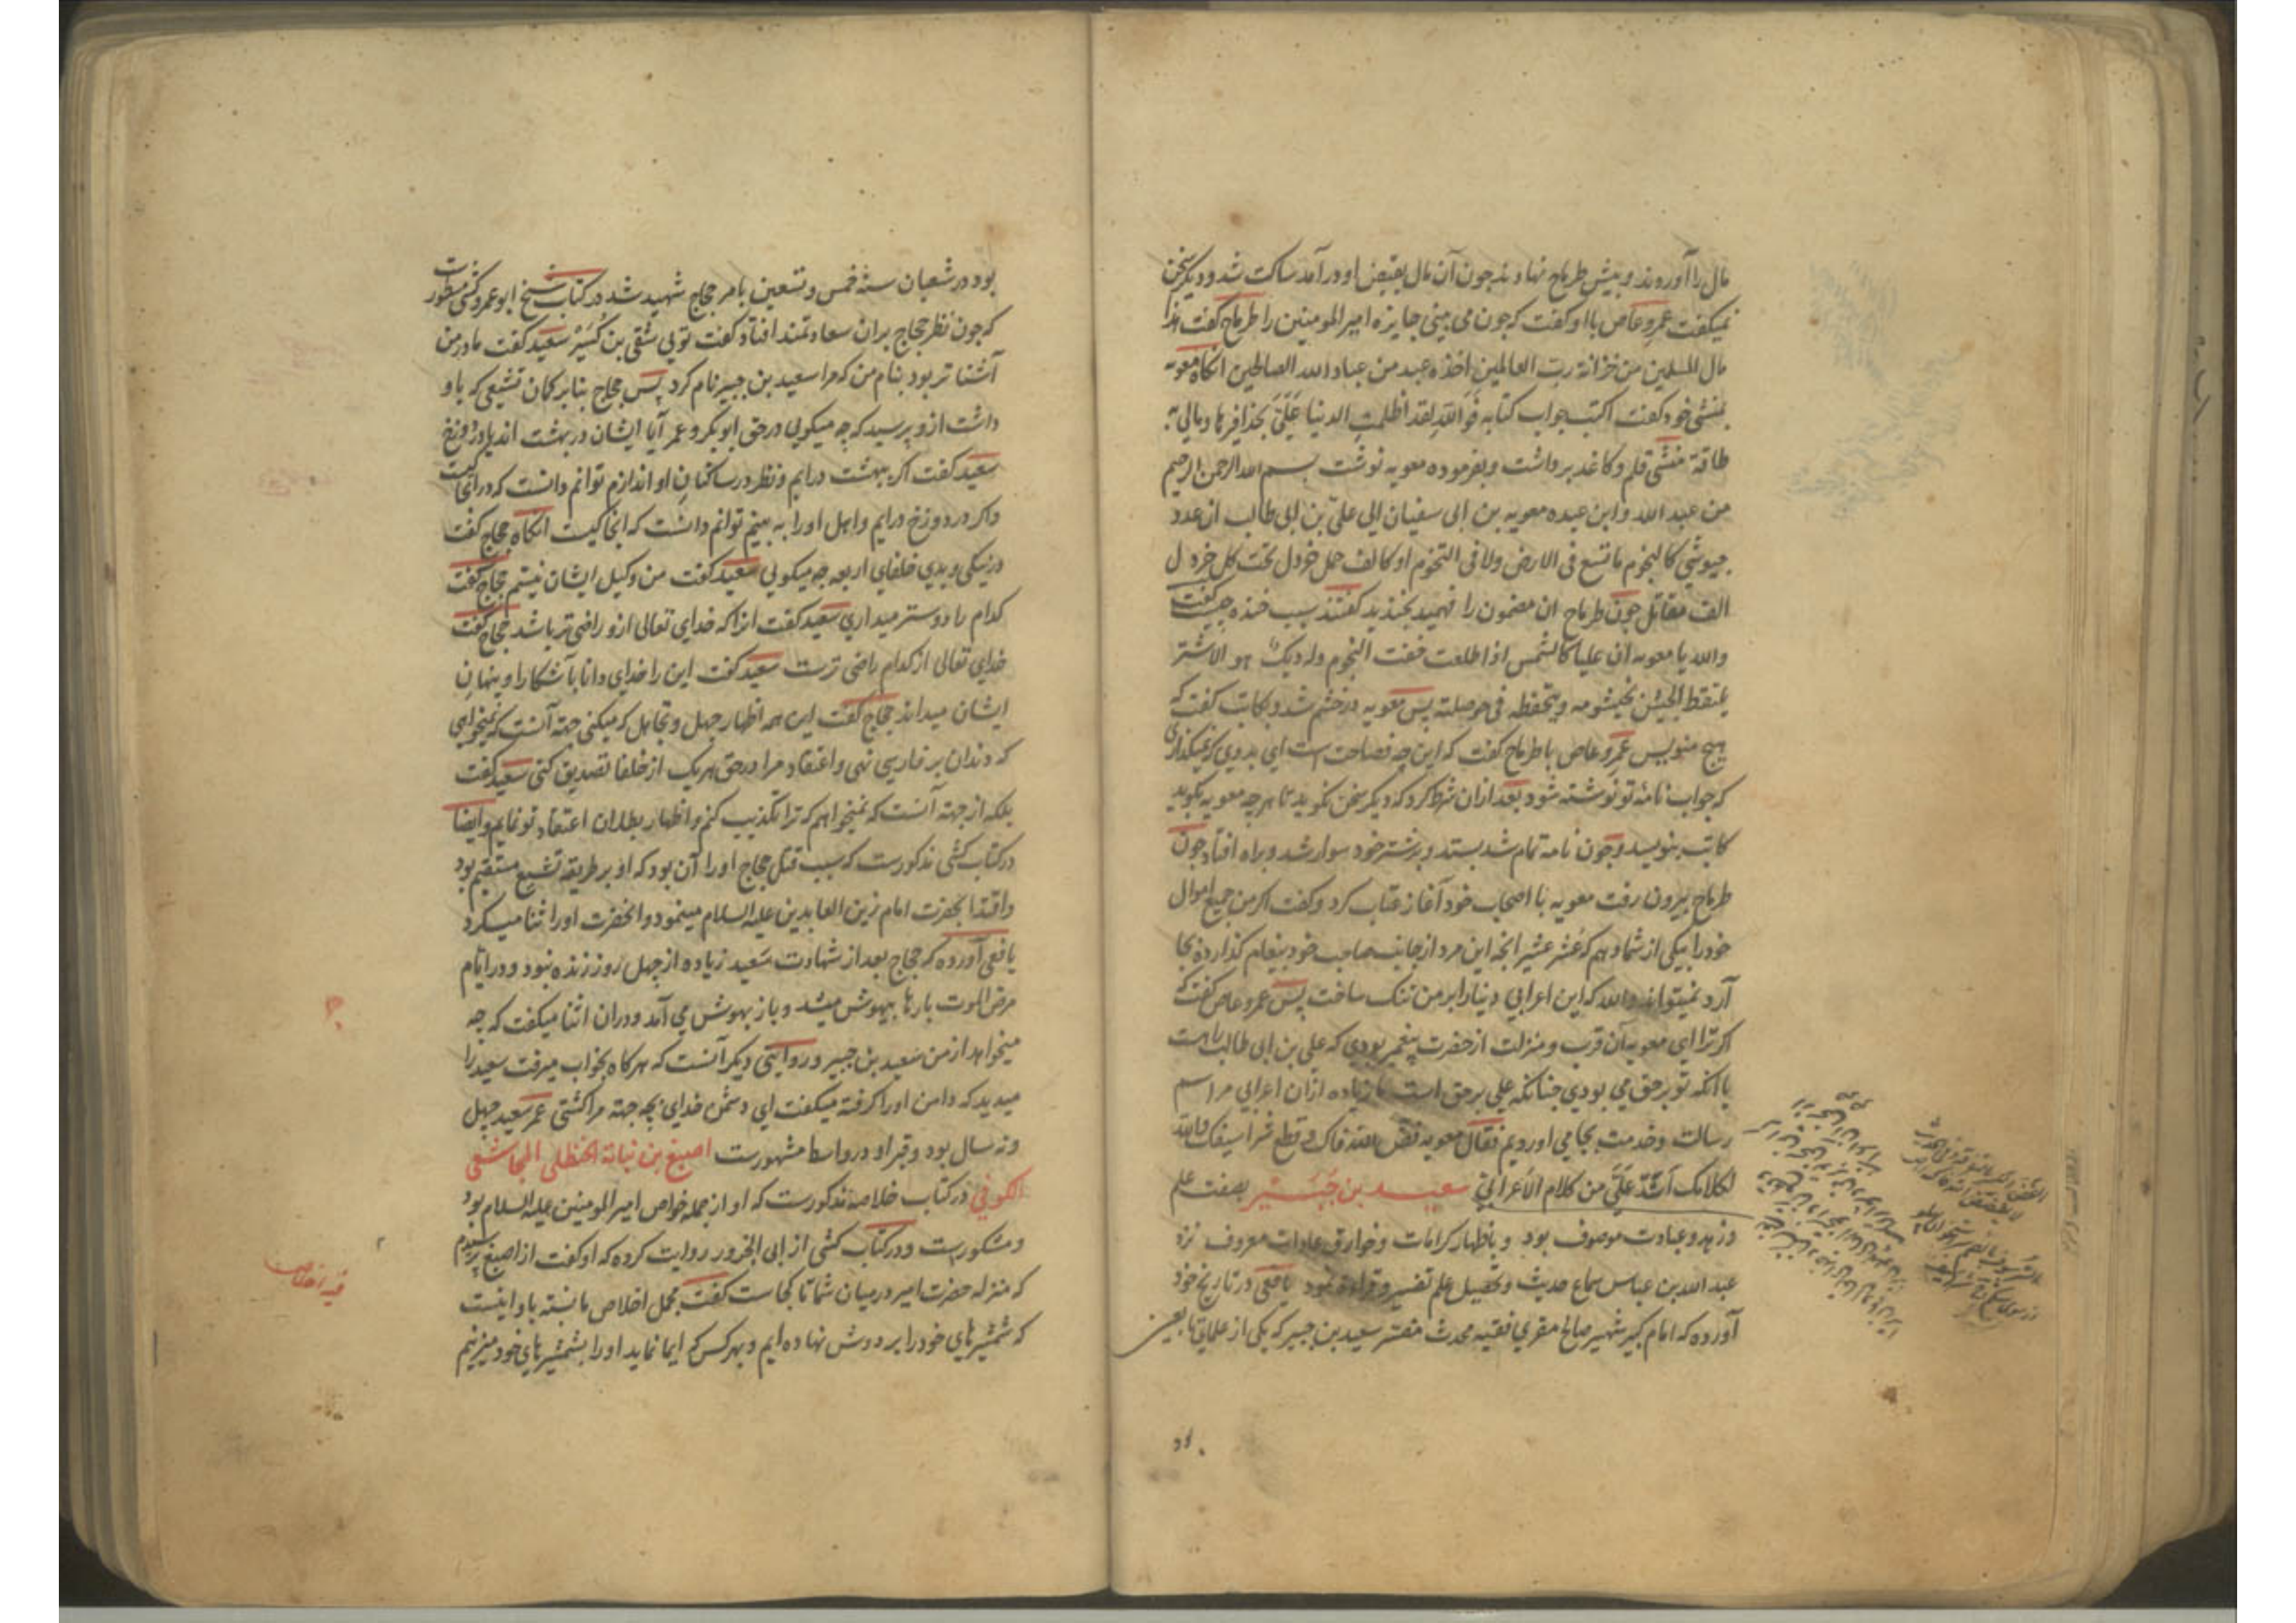 مال را آوردند و پیش طرماح نهادند چون آن مال بقبض او درآمد ساکت شد و دیگر سخن
نمیگفت عمرو عاص با او گفت که چون می بینی جایزه امیر المومنین را طرماح گفت هذا
مال المسلمین من خزانة رب العالمین اخذه عبد من عباد الله الصالحین انکاه معویه
بمنشی خود گفت اکتب جواب کتابه فوالله لقد اظلمت الدنیا علی بحذافیرها و مالی به
طاقة منشی قلم و کاغذ برداشت و بفرموده معویه نوشت بسم الله الرحمن الرحیم
من عبد الله وابن عبده معویه بن ابی سفیان الی علی بن ابی طالب ان عدد
جیوشی کالنجوم ما تسع فی الارض ولا فی التخوم او کالف حمل خردل تحت کل خردل
الف مقاتل چون طرماح ان مضمون را فهمید بخندید گفتند سبب خنده چیست گفت
والله یا معویه ان علیا کالشمس اذا طلعت خفت النجوم وله دیک هو الاشتر
یلتقط الجیش بخیشومه ویحفظه فی حوصلته پس معویه در خشم شد و بکاتب گفت که
هیچ منویس عمرو عاص با طرماح گفت که این چه فصاحت است ای بدوی که نمیگذاری
که جواب نامه تو نوشته شود بعد ازان شرط کرد که دیگر سخن نگوید تا هرچه معویه بگوید
کاتب بنویسد و چون نامه تمام شد بستد و بر شتر خود سوار شد و براه افتاد چون
طرماح بیرون رفت معویه با اصحاب خود آغاز عتاب کرد و گفت اگر من جمیع اموال
خود را بیکی از شما دهم که عشر عشیر آنچه این مرد از جانب صاحب خود پیغام گذارده بجا
آرد نمیتواند والله که این اعرابی دنیا را بر من تنک ساخت پس عمرو عاص گفت که
اکر ترا ای معویه آن قرب و منزلت از حضرت پیغمبر بودی که علی بن ابی طالب راست
یا آنکه تو بر حق می بودی چنانکه علی بر حق است ما زیاده ازان اعرابی مراسم
رسالت و خدمت بجا می آوردیم فقال معویه فض الله فاک و قطع شراسیفک والله
لکلامک اشد علی من کلام الاعرابی سعید بن جبیر بصفت علم
و زهد و عبادت موصوف بود و باظهار کرامات و خوارق عادات معروف نزد
عبد الله بن عباس سماع حدیث و تحصیل علم تفسیر و قراءة نمود یافعی در تاریخ خود
آورده که امام کبیر شهیر صالح مقری فقیه محدث مفسر سعید بن جبیر که یکی از علمای تابعین
بود در شعبان سنه خمس و تسعین بامر حجاج شهید شد در کتاب شیخ ابوعمرو کشی مسطورست
که چون نظر حجاج بران سعادتمند افتاد گفت تویی شقی بن کسیر سعید گفت مادر من
آشناتر بود بنام من که مرا سعید بن جبیر نام کرد پس حجاج بنابر کمان تشیعی که باو
داشت ازو پرسید که چه میکویی در حق ابوبکر و عمر آیا ایشان در بهشت اند یا در دوزخ
سعید گفت اگر ببهشت درایم و نظر در ساکنان او اندازم توانم دانست که در انجا کیست
و اگر در دوزخ درایم و اهل او را به بینم توانم دانست که انجا کیست انکاه حجاج گفت
در نیکی و بدی خلفای اربعه چه میکویی سعید گفت من وکیل ایشان نیستم حجاج گفت
کدام را دوستر میداری سعید گفت انرا که خدای تعالی ازو راضی تر باشد حجاج گفت
خدای تعالی از کدام راضی ترست سعید گفت این را خدای دانا بآشکارا و پنهان
ایشان میداند حجاج گفت این همه اظهار جهل و تجاهل که میکنی جهة آنست که نمیخواهی
که دندان بر فارسی نهی و اعتقاد مرا در حق هریک از خلفا تصدیق کنی سعید گفت
بلکه از جهة آنست که نمیخواهم که ترا تکذیب کنم و اظهار بطلان اعتقاد تو نمایم وایضا
در کتاب کشی مذکورست که سبب قتل حجاج او را آن بود که او بر طریقه تشیع مستقیم بود
و اقتدا بحضرت امام زین العابدین علیه السلام مینمود و انحضرت او را ثنا میکرد
یافعی آورده که حجاج بعد از شهادت سعید زیاده از چهل روز زنده نبود و در ایام
مرض الموت بارها بیهوش میشد و باز بهوش می آمد و دران اثنا میکفت که چه
میخواهد از من سعید بن جبیر و روایتی دیگر آنست که هرکاه بخواب میرفت سعید را
میدید که دامن او را کرفته میکفت ای دشمن خدای بچه جهة مرا کشتی عمر سعید چهل
ونه سال بود و قبر او در واسط مشهورست اصبغ بن نباتة الحنظلی المجاشعی
الکوفی در کتاب خلاصه مذکورست که او از جمله خواص امیر المومنین علیه السلام بود
و مشکورست و در کتاب کشی از ابی الجارود روایت کرده که او گفت از اصبغ پرسیدم
که منزله حضرت امیر در میان شما تا کجاست گفت مجمل اخلاص ما نسبت باو اینست
که شمشیرهای خود را بر دوش نهاده ایم و بهر کس که ایما نماید او را بشمشیرهای خود میزنیم